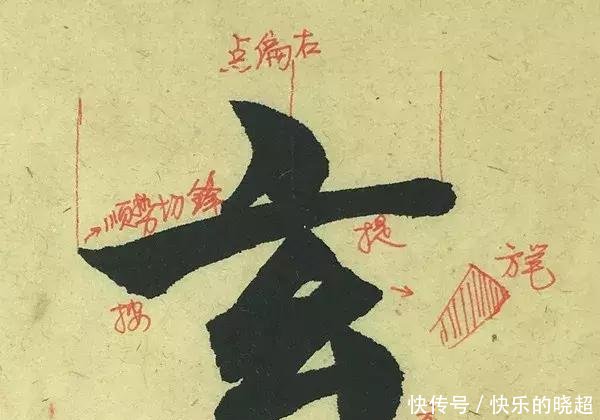 点偏右
顺势切锋
玄
提
方笔
按
快传号／快乐的晓超